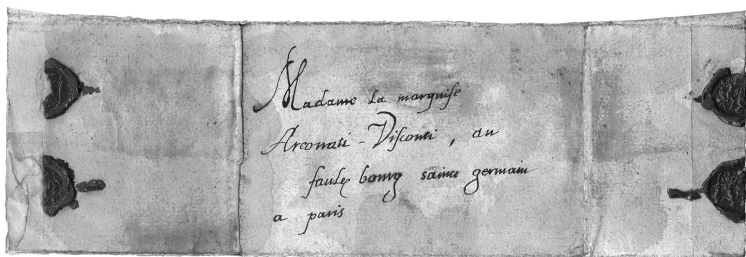 Madame la marquise
Arconati-Visconti, au
faulx bourg sainct germain
a paris